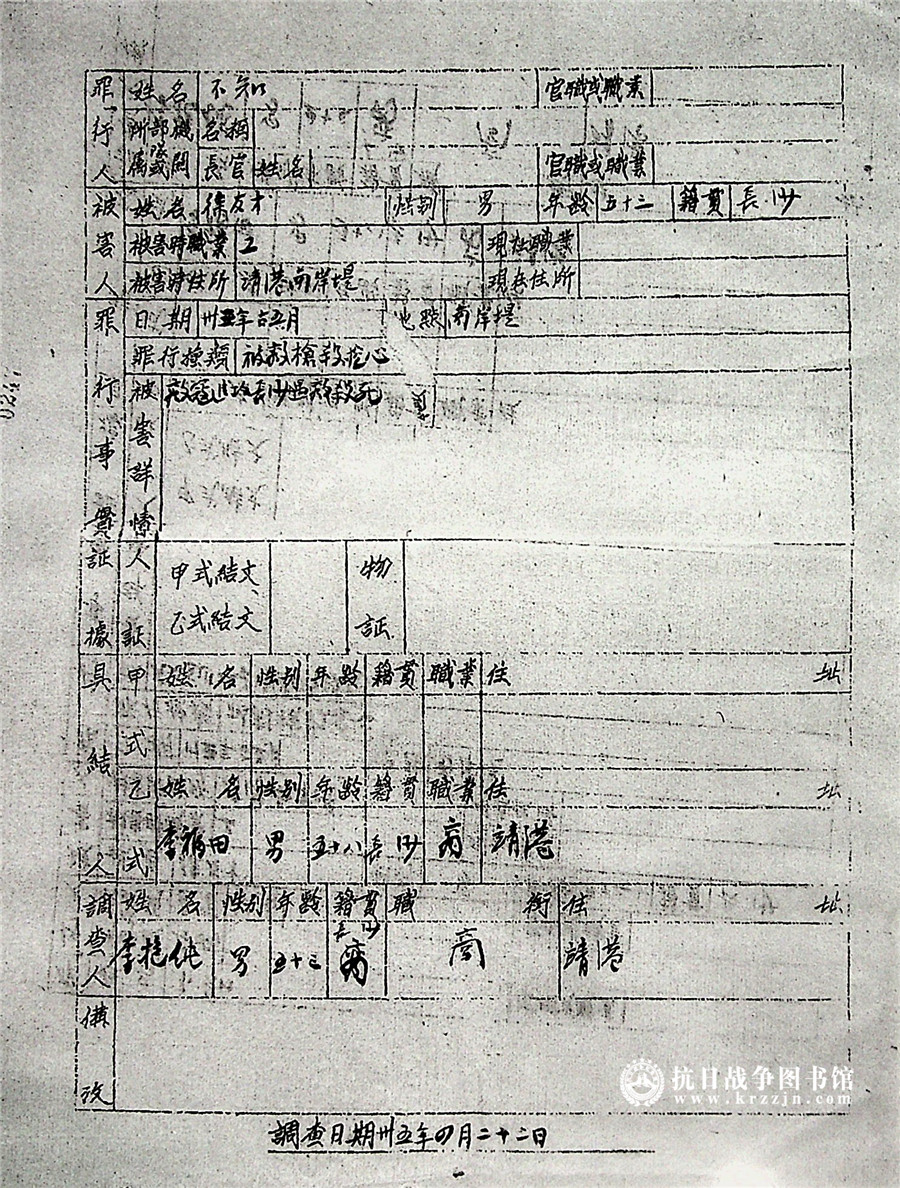 罪行人 姓名 不知 官職或職業
所属部隊或機關 名稱
長官姓名 官職或職業
被害人 姓名 徐友才 性别 男 年齡 五十三 籍貫 長沙
被害時職業 工 現在職業
被害時住所 靖港南岸堤 現在住所
罪行事實 日期 卅五年 五月 地點 南岸堤
罪行種類 被敵槍殺挖心
被害詳情 敵寇 長沙 殺死
証據 人証 甲式結文、 物証
乙式結文
具結人 甲式 姓名 性别 年齡 籍貫 職業 住址
乙式 姓名 性别 年齡 籍貫 職業 住址
李福田 男 五十八 長沙 商 靖港
調查人 姓名 性别 年齡 籍貫 職銜 住址
李 男 五十三 長沙 商 靖港
備攷
調查日期卅五年四月二十二日
0247
抗日战争图书馆
www.krzzjn.com